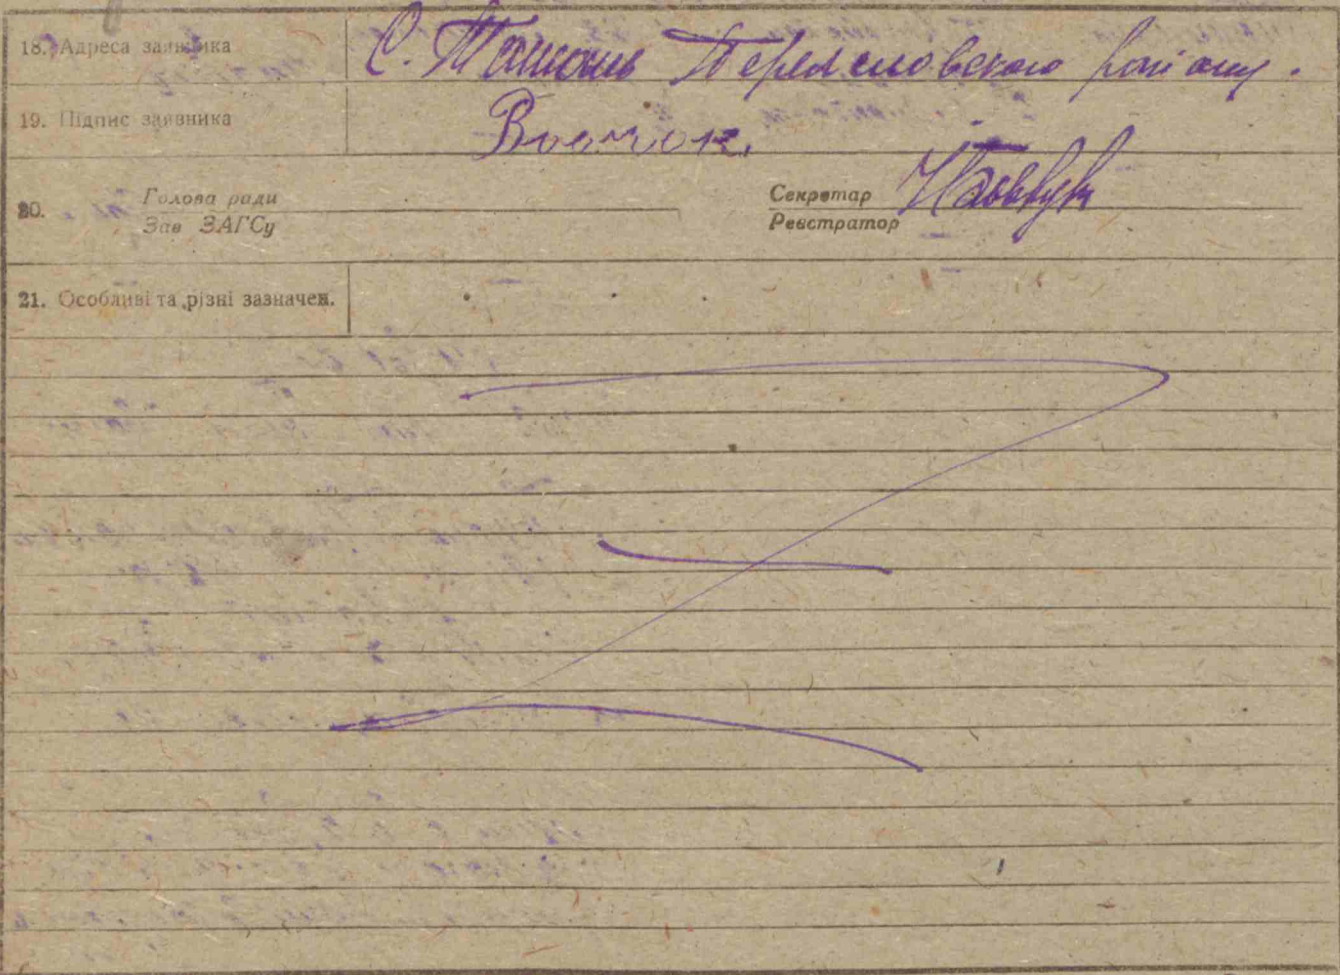 18. Адреса заявника С. Ташань Переяславського району.
19. Підпис заявника
20. Голова ради Секретар
Зав ЗАГСу Реєстратор
21. Особливі та різні зазначен.